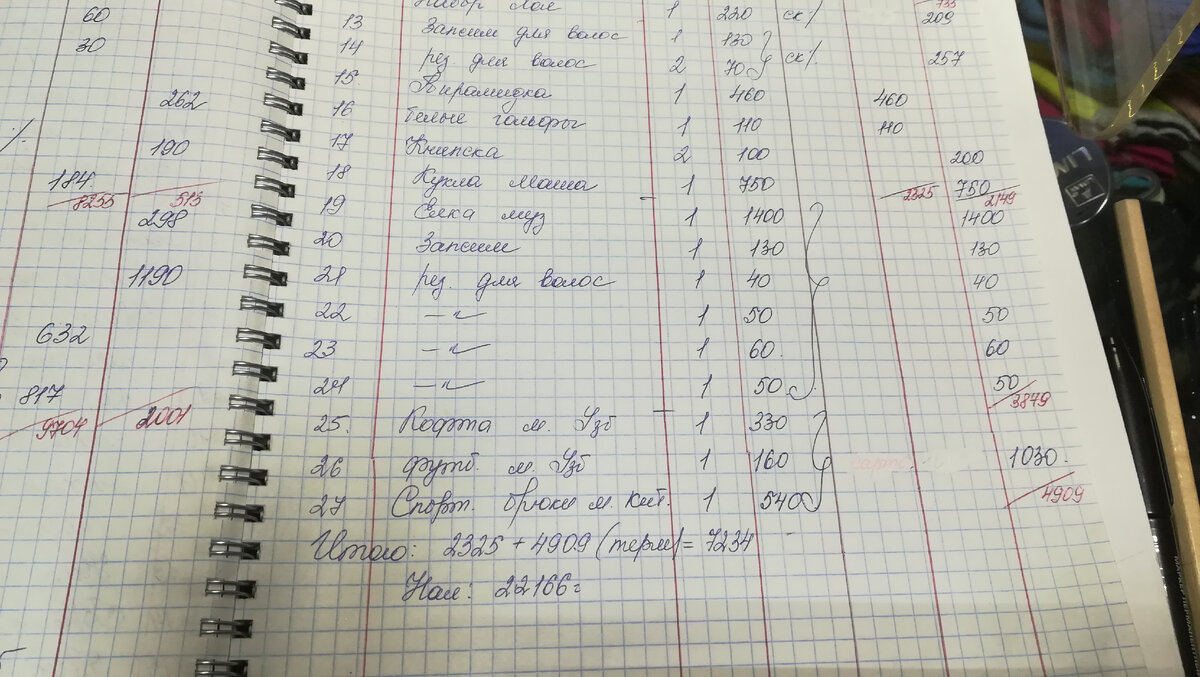 60
30
262
%
190
184.
8255 513
298
1190
632
817
9704 2001
Набор Лол 1 220 ск% 209
13 Запсим для волос 1 130
14 рез. для волос 2 70 ск% 257
15. Пирамидка 1 460 460
16 белые гольфы 1 110 110
17 Книпска 2 100 200
18 Кукла Маша 1 750 2325 750
2149
19 Ёлка муз 1 1400 1400
20 Запсим 1 130 130
21 рез. для волос 1 40 40
22 —〃— 1 50 50
23 —〃— 1 60. 60
24 —〃— 1 50 50
3879
25. Кофта м. Узб 1 330
26 футб. м. Узб 1 160 1030.
27 Спорт. брюки м. Кит. 1 540
4909
Итого: 2325 + 4909 (терм) = 7234
Нал: 22166